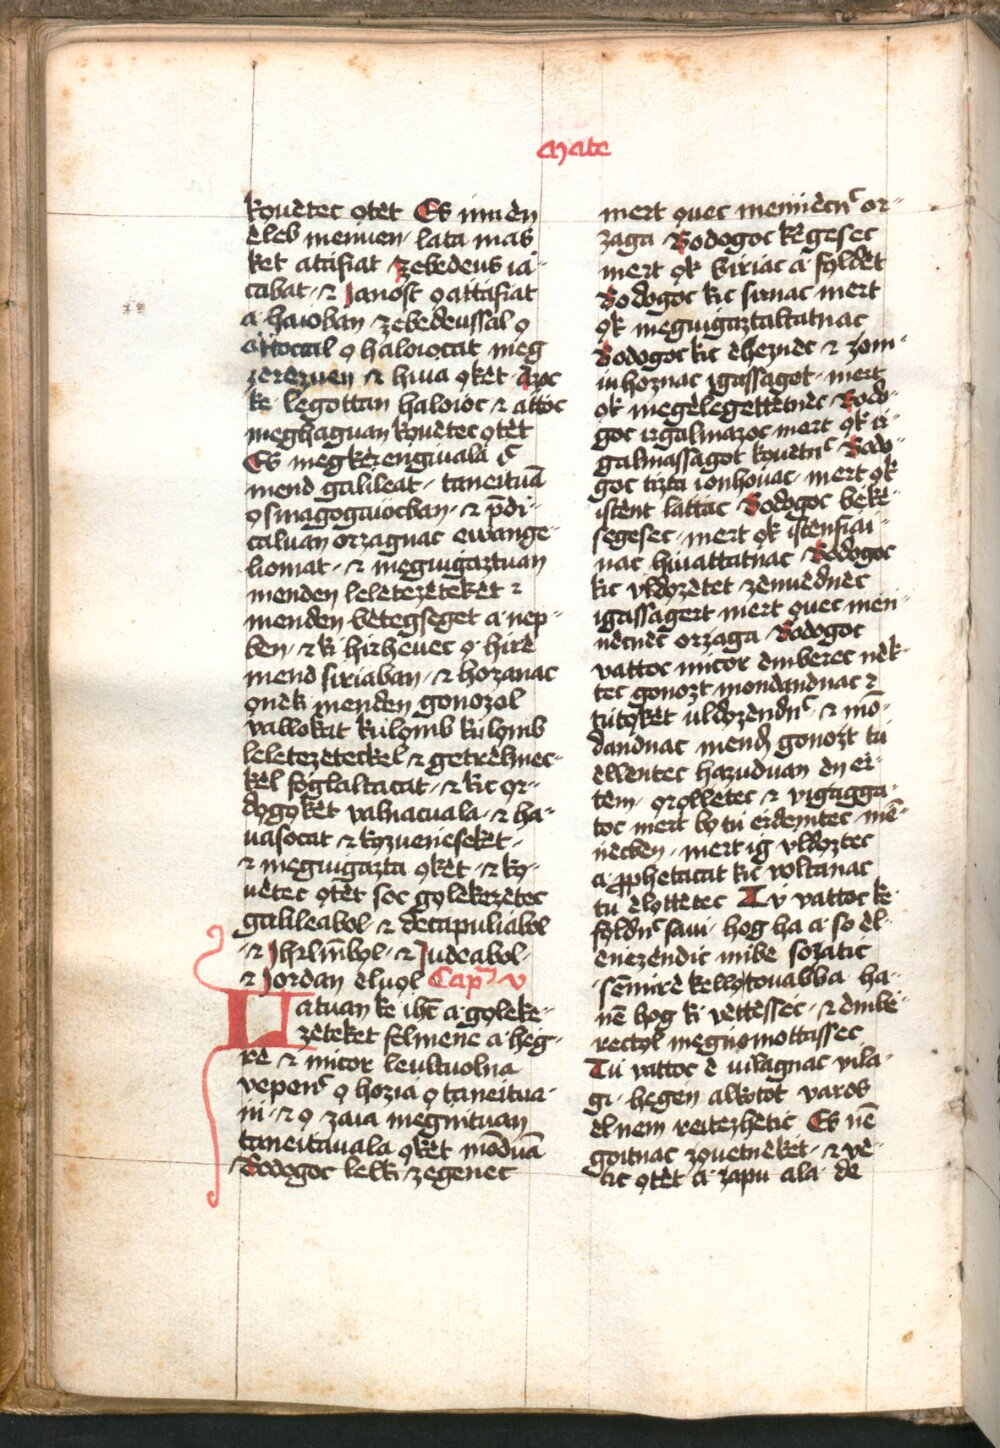 Mate
kọuètec ọtèt Es innèn
èleb menuèn · lata mas
ket atafiat zebedeus ia-
cabat · ⁊ Janost ọattafiat
a haioban zebedeussal ọ
attocal ọ haloiocat meg
zerèzuèn ⁊ hiua ọkèt · Azoc
kè legottan haloioc ⁊ attoc
meghaguan kọuètec ọtèt
Es megkèrengiuala c̄
mend galileat · taneituā
ọ sinagogaiocban · ⁊ p̄di-
caluan orzagnac ewange-
liomat · ⁊ meguigaztuan
menden leletezèteket ⁊
menden bètegseget a nèp-
ben · ⁊ ki hirheuec ọ hirè
mend siriaban · ⁊ hozanac
ọnèki menden gonozol
vallokat kúlọmb kúlọmb
leletezèteckel ⁊ getrèlmec-
kèl foglaltacat · ⁊ kic ọr-
dọgọkèt vallnacuala · ⁊ ha-
uasocat ⁊ kọzueneseket ·
⁊ meguigazta ọkèt · ⁊ kọ-
uètec ọtèt soc gọlekezètec
galileabol · ⁊ decapuliabol
· ⁊ Jhrlm̄bọl · ⁊ Judeabol ·
⁊ Jordan eluọl Cap̄ v
Latuan kè ihc̄ a gọleke-
zèteket felmene a hèg-
rè ⁊ micor leultuolna
vepenc̄ ọ hozia ọ taneitua-
ni · ⁊ ọ zaia megnituan
taneitauala ọkèt mōduā
Bodogoc lelki zegenec
mert ọuec menńècnc̄ or-
zaga Bodogoc kègesec
mert ọk biriac a fọldèt
Bodogoc kic sirnac mert
ọk meguigaztaltatnac
Bodogoc kic èheznèc ⁊ zom-
iuhoznac igassagot · mert
ọk megèlegettètnèc · Bodo-
goc irgalmazoc mert ọk ir-
galmassagot kọuetnc̄ Bodo-
goc tizta ionhouac · mert ọk
istènt lattac · Bodogoc bèke-
segesec · mert ọk istènfiai-
nac hiuattatnac · Bodogoc
kic vldọzètet zènuednèc
igassagert mert ọuec men-
nècnèc orzaga Bodogoc
vattoc micor èmberec nèk-
tec gonozt mondandnac ⁊
titọkèt úldọzèndnc̄ · ⁊ mō-
dandnac mendọ gonozt tú
èllèntec hazuduan èn èr-
tèm · ọrọllètec ⁊ vigagga-
toc mert bọ tú èrdemtec · mē-
nècben · mert ig vldọztec
a pphetacat kic voltanac
tú èlọttètec Tv vattoc kè
fọldnc̄ saui · hog ha a · so èl-
enezèndic mibe sozatic
· sēmirè kellètouabba ha-
nē hog ki vèttèssec · ⁊ èmbè-
rectọl megńomottassec
Tú vattoc è uilagnac vila-
gi · hegen alkotot varos
èl nem reitezhètic Es nē
goitnac zọuetnèket · ⁊ ve-
tic ọtèt a zapu ala · dè